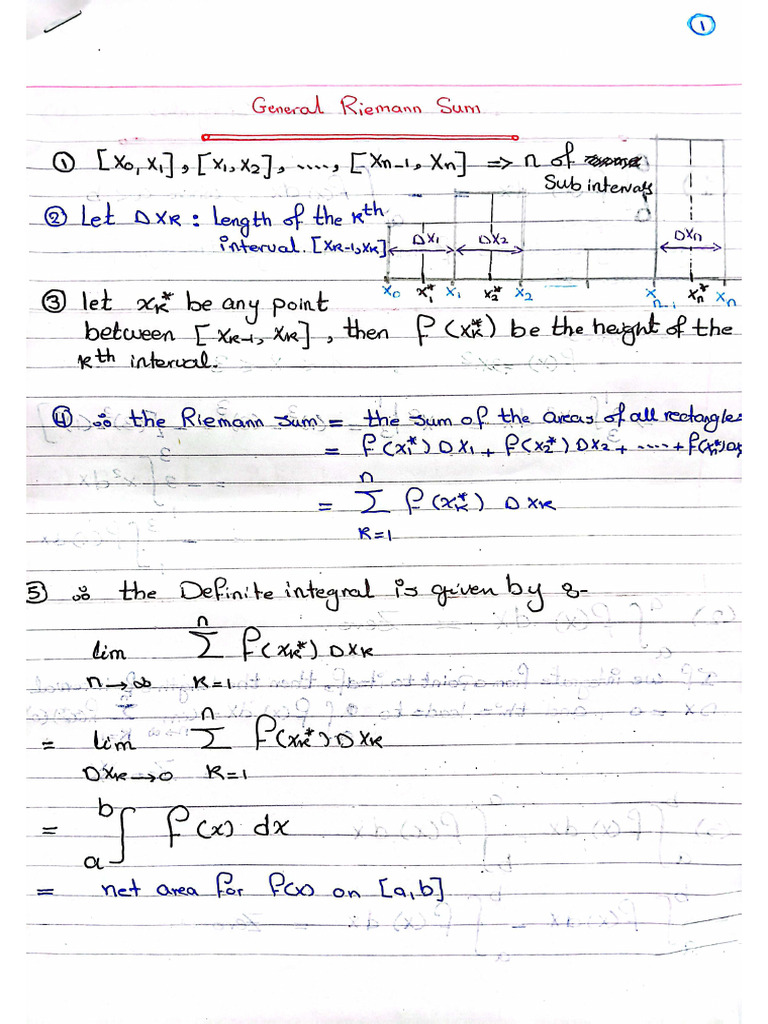 ①
General Riemann Sum
① [x₀, x₁], [x₁, x₂], ....., [xₙ₋₁, xₙ] ⇒ n of
Sub intervals
② Let Δxₖ : length of the kᵗʰ
interval. [xₖ₋₁, xₖ]
Δx₁ Δx₂ Δxₙ
x₀ x₁* x₁ x₂* x₂ xₙ₋₁ xₙ* xₙ
③ let xₖ* be any point
between [xₖ₋₁, xₖ], then f(xₖ*) be the height of the
kᵗʰ interval.
④ ∴ the Riemann sum = the sum of the areas of all rectangles
= f(x₁*) Δx₁ + f(x₂*) Δx₂ + ..... + f(xₙ*) Δxₙ
= ∑ₖ₌₁ⁿ f(xₖ*) Δxₖ
5 ∴ the Definite integral is given by :-
lim n→∞ ∑ₖ₌₁ⁿ f(xₖ*) Δxₖ
= lim Δxₖ→0 ∑ₖ₌₁ⁿ f(xₖ*) Δxₖ
= ₐ∫ᵇ f(x) dx
= net area for f(x) on [a,b]